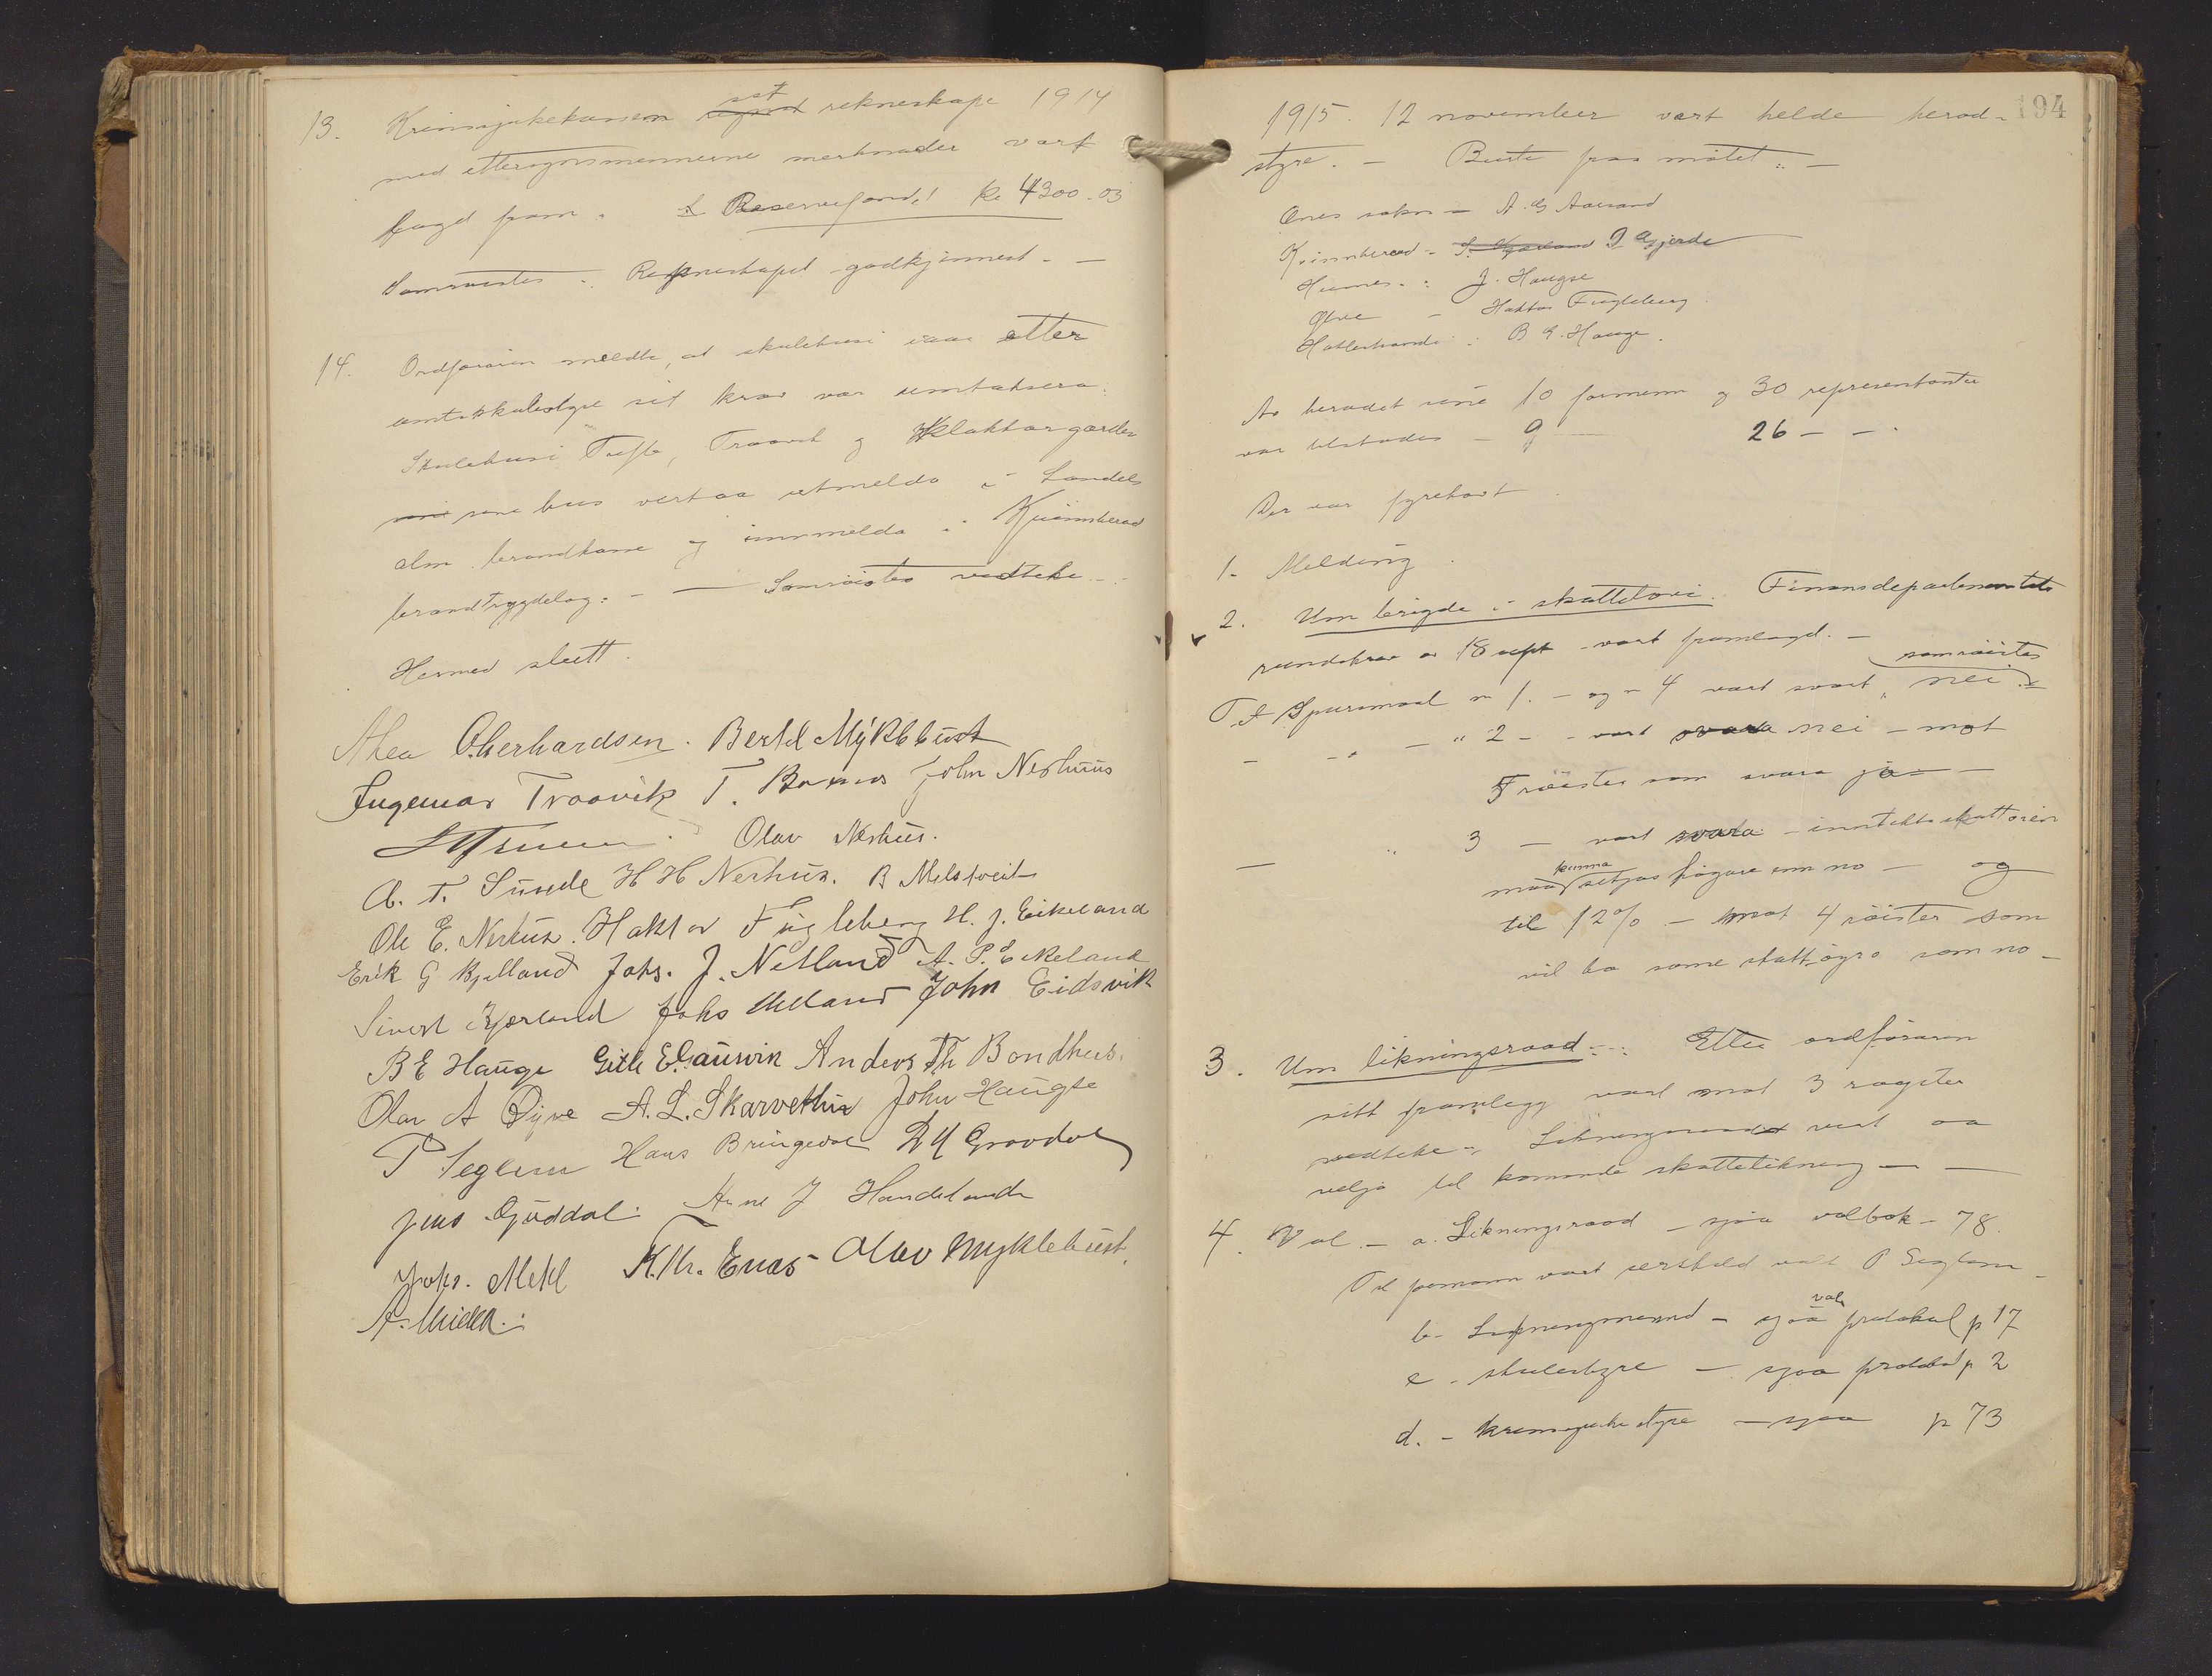 13. Krinssjukekassen set rekneskape 1914
med ettersynsmennerne merknader vart
lagd fram. Reservefond! kr 4300.03
Samrøistes: Rekneskapet godkjennest. —
14. Ordføraren melde, at skulehusi vaar etter
amtsskulestyre sit krav var umtaksera.
Skulehusi Tufte, Traavik og Klaktargarden
sine hus vert aa utmelda i Landels
alm. brandkasse og innmelda i Kvinnherad
brandtrygdelag. — Samrøistes vedteke. —
Hermed slutt.
Gerhardsen. Bertel Myklebust
Ingemar Traavik T. Bakke John Nerhuus
Olav Nerhus.
A. T. Sunde H H Nerhus. B Melstveit
Ole E. Nerhus. Haktor Fugleberg H. J. Eikeland
Erik G Kjelland Johs. J. Netland A. P. Eikeland
Sivert Kjærland Johs Uelland John Eidsvik
B E Hauge Gitle E. Gausvin Anders Th Bondhus.
Olav A Øyre A. L. Skarvethus John Haugse
P Seglem Hans Bringedal D H Gravdal
Jens Guddal. Arne J Handeland
Johs. Mehl K. Kr. Enæs Olav Myklebust.
194
1915. 12 november vart helde herad-
styre. — Burte fraa møtet: —
Ænes sokn — A. G Aarsand
Kvinnherad - S. Kjærland J Gjerde
Husnes. : J. Haugse
Ølve — Haktor Fugleberg
Hatlestrand : B E. Hauge.
Av heradet sine 10 formenn og 30 representanter
var tilstades — 9 — 26 — — .
Der var fyrehavt
1. Melding.
2. Um brigde i skattelovi. Finansdepartementets
rundskriv av 18 sept vart framlagd. —
Til Spursmaal n 1. — og n 4 vart svart samrøistes nei.
— — " 2 — vart svara nei — mot
5 røister som svara ja —
— " 3 — vart svara — inntektsskattøren
maa kunna setjas høgare enn no — og
til 12% — mot 4 røister som
vil ha same skattøyre som no —
3. Um likningsraad: — Etter ordføraren
sitt framlegg vart mot 3 røyster
vedteke: Likningsraadet vert aa
velja til komande skattelikning — —
4. Val — a. Likningsraad — sjaa valbok — 78.
Til formann vart serskild vald P Seglem —
b — Likningsnemnd — sjaa val protokol p 17
c — skulestyre — sjaa protokol p 2
d. — krinssjukestyre — sjaa p 73